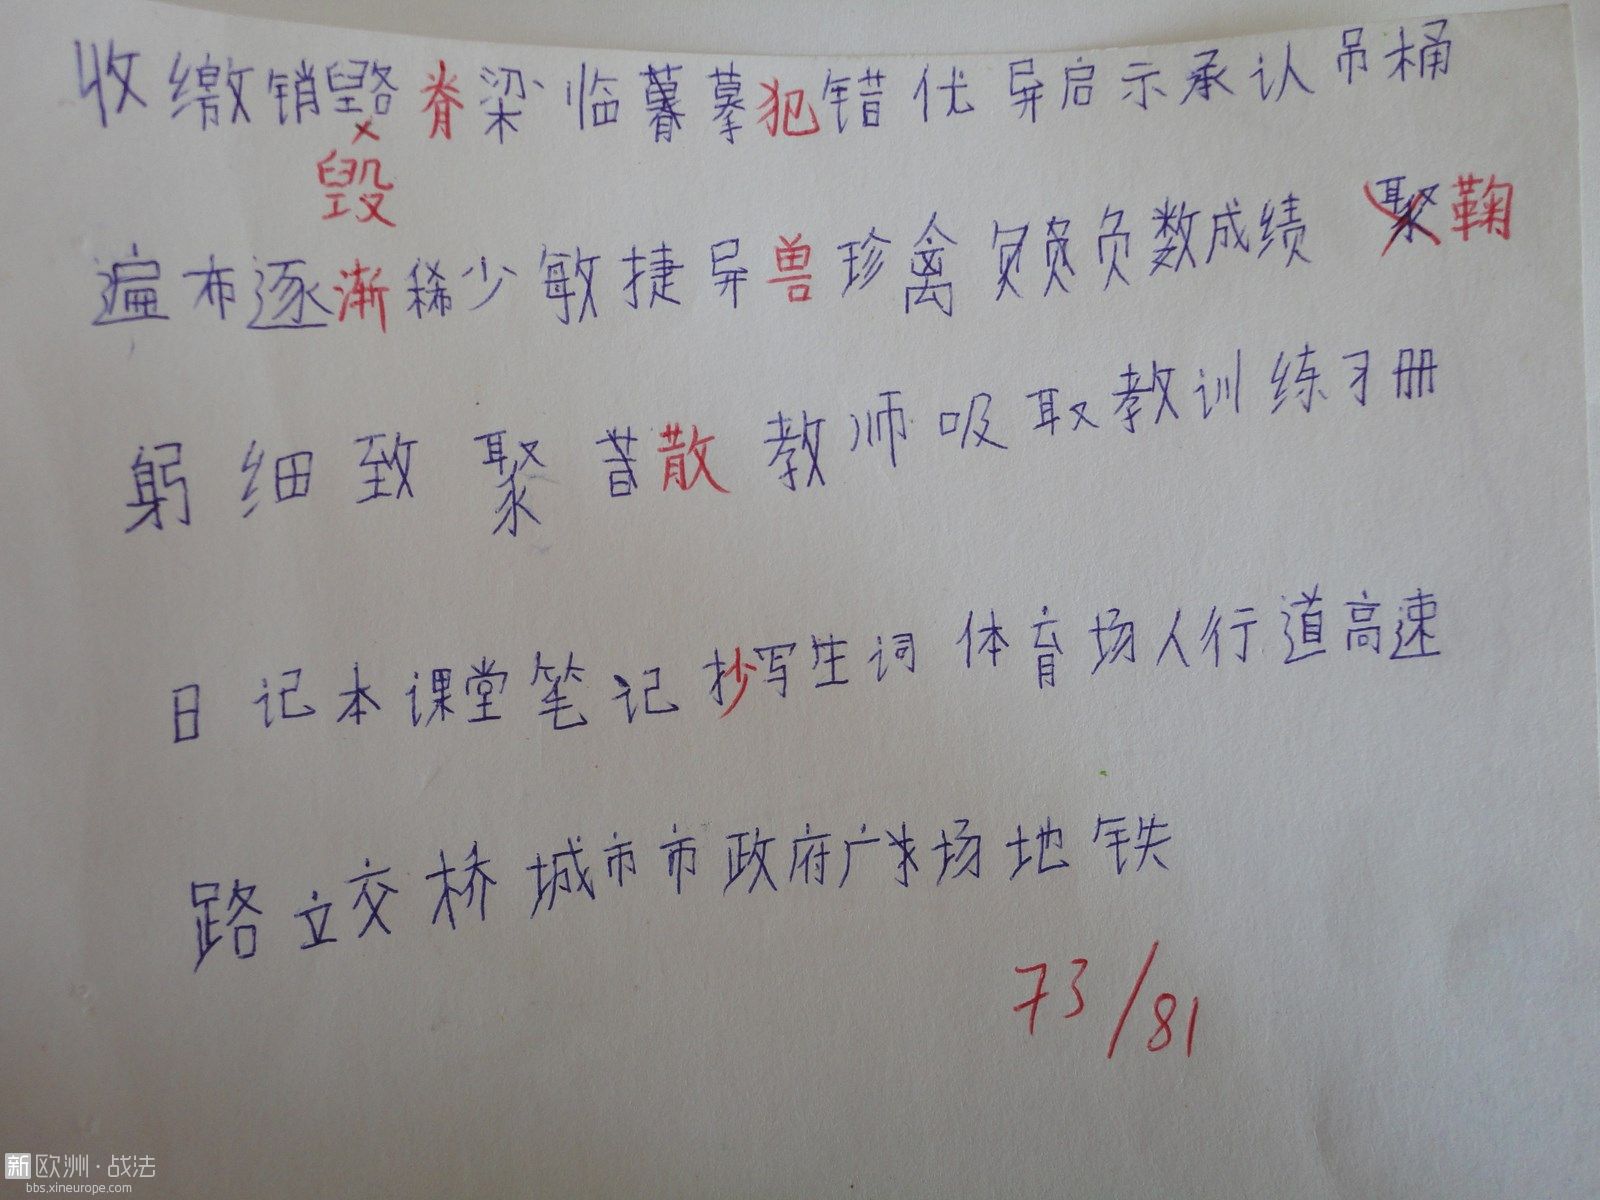 收缴销毁脊梁临暮摹犯错优异启示承认吊桶
毁
遍布逐渐稀少敏捷异兽珍禽负负负数成绩 聚鞠
躬细致聚昔散教师吸取教训练习册
日记本课堂笔记抄写生词体育场人行道高速
路立交桥城市市政府广场地铁
73/81
新欧洲·战法
bbs.xineurope.com